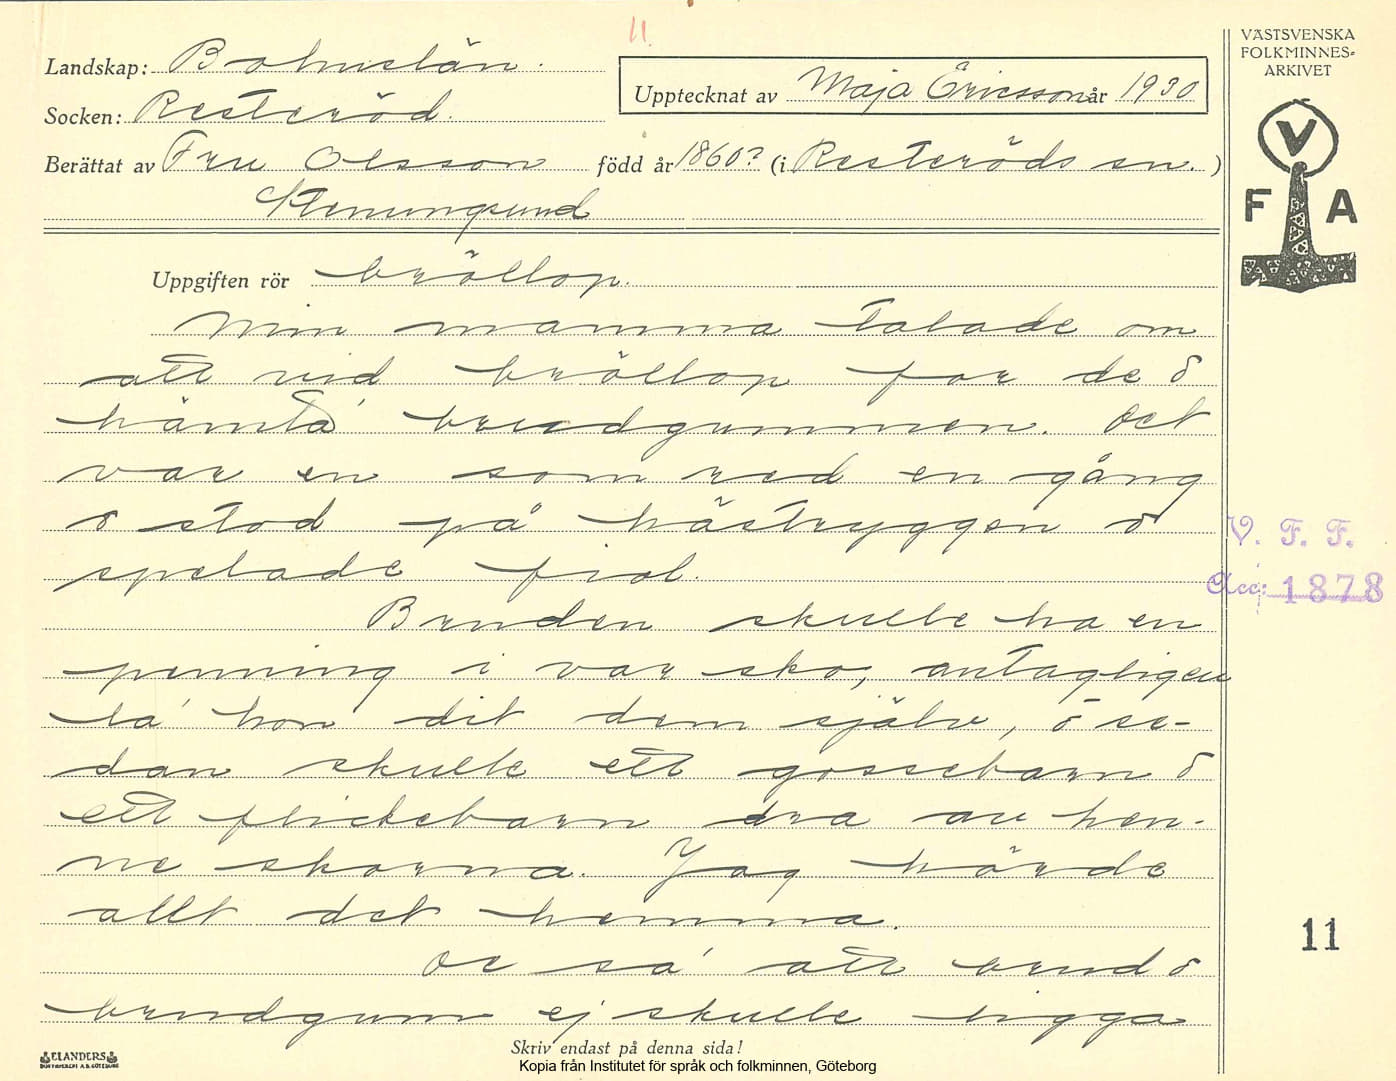 11.
VÄSTSVENSKA
FOLKMINNES-
ARKIVET
V
F A
Landskap: Bohuslän.
Upptecknat av Maja Ericsson år 1930
Socken: Resteröd.
Berättat av Fru Olsson född år 1860? (i Resteröds sn. )
Stenungsund
Uppgiften rör bröllop.
Min mamma talade om
att vid bröllop for de o
hämta brudgummen. Det
var en som red en gång
o stod på hästryggen o
spelade fiol.
V. F. F.
Acc: 1878
Bruden skulle ha en
penning i var sko, antagligen
la' hon dit dem själv, o se-
dan skulle ett gossebarn o
ett flickebarn dra av hen-
ne skorna. Jag hörde
allt det hemma.
11
Oc så att brud o
brudgum ej skulle ligga
Skriv endast på denna sida!
ELANDERS
BOKTRYCKERI A.B. GÖTEBORG
Kopia från Institutet för språk och folkminnen, Göteborg